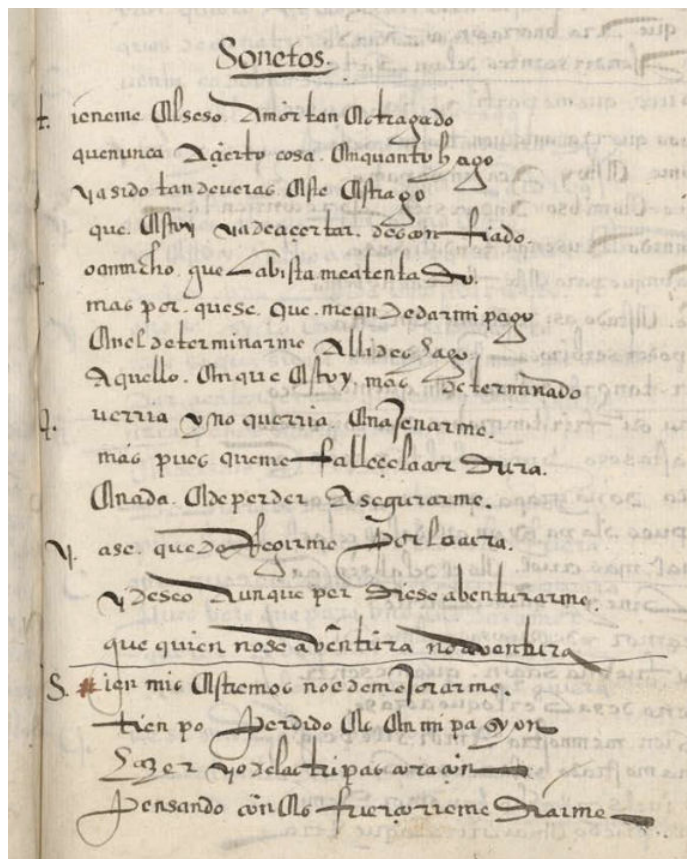 Sonetos.
t. ieneme Alseso Amor tan Astragado
quenunca Açierto cosa. Anquanto hago
ya sido tan deveras Aste Astrago
que. Astoy ya de acertar. desconfiado.
mas por. quese. que. mean de dar mi pago
Anel determinarme Alli deshago
Aquello. Anque Astoy, mas determinado
q. uerria y no querria Anajenarme.
mas pues queme falleçe la
Anada. Adeperder Asegurarme.
y. ase. que de Regirme por locura.
y deseo Aunque per diese abenturarme.
que quien nose aventura no aventura
S. ien mis Astremos no e de mejorarme.
tien po perdido As An mi pasyon
hazer yo de las tripas coraçon
pensando con As fuerço